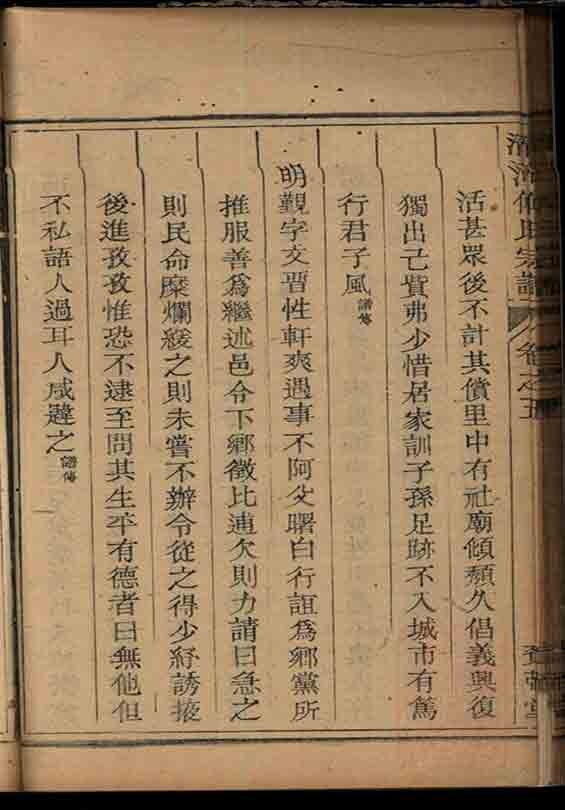 氏宗譜 卷之五
活甚眾後不計其償里中有社廟傾頹久倡義興復
獨出己貲弗少惜居家訓子孫足跡不入城市有篤
行君子風譜傳
明觀字文晋性軒爽遇事不阿父曙白行誼為鄉黨所
推服善為繼述邑令下鄉徵比逋欠則力請曰急之
則民命糜爛緩之則未嘗不辦令從之得少紓誘掖
後進孜孜惟恐不逮至問其生平有德者曰無他但
不私語人過耳人咸韙之譜傳